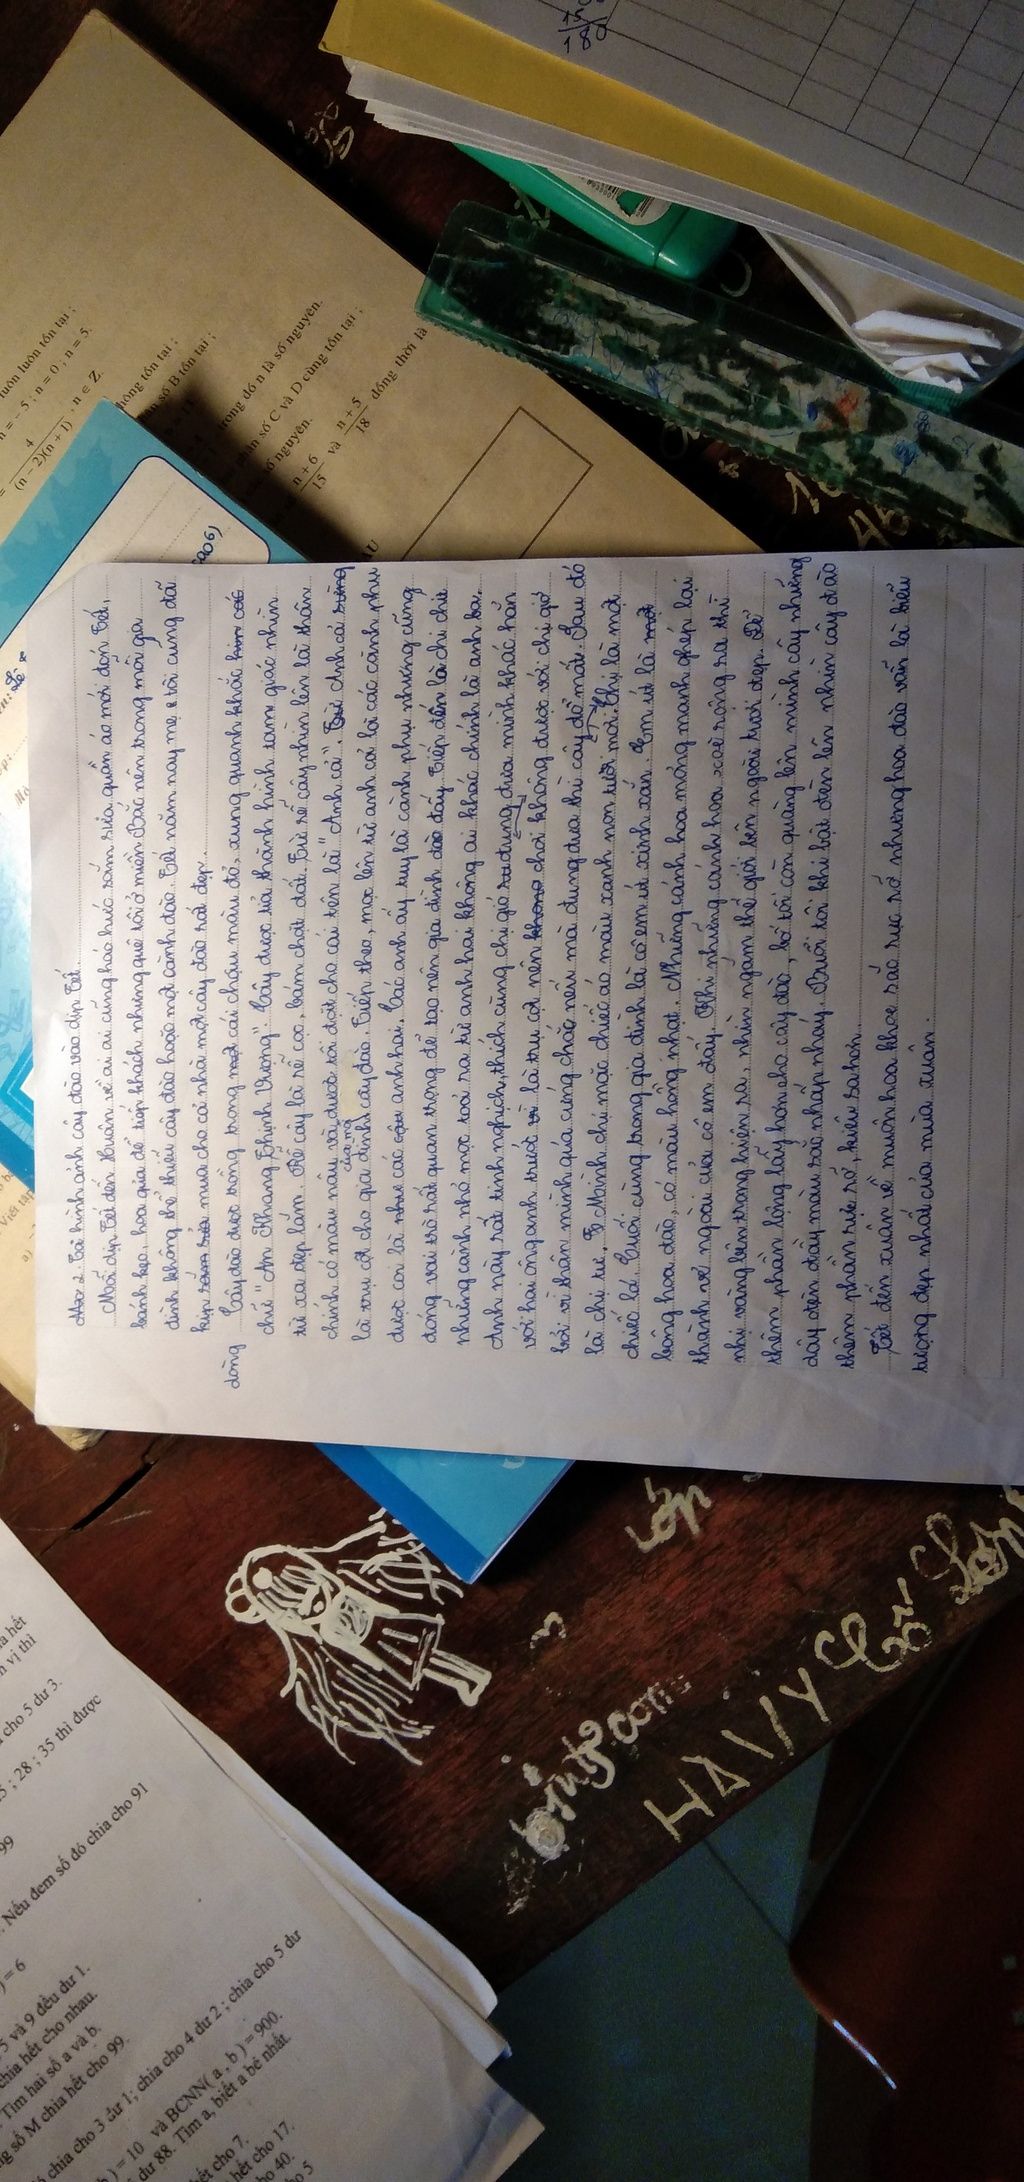 Mở 2. Tả hình ảnh cây đào vào dịp Tết.
Mỗi dịp Tết đến Xuân về ai ai cũng háo hức sắm sửa quần áo mới đón Tết,
bánh kẹo, hoa quả để tiếp khách nhưng quê tôi ở miền Bắc nên trong mỗi gia
đình không thể thiếu cây đào hoặc một cành đào. Tết năm nay mẹ tôi cũng đã
kịp mua cho cả nhà một cây đào rất đẹp.
Cây đào được trồng trong cái chậu màu đỏ, xung quanh khắc
dòng
chữ "An Khang Thịnh Vượng". Cây được tỉa thành hình tam giác nhìn
từ xa đẹp lắm. Rễ cây là rễ cọc, bám chặt đất. Từ rễ cây nhìn lên là thân
chính có màu nâu và được tôi đặt cho cái tên là "Anh cả". Anh cả
là trụ cột cho gia đình của mạ cây đào. Tiếp theo, mọc lên từ anh cả là các cành phụ
được coi là như các anh hai. Các anh ấy tuy là cành phụ nhưng cũng
đóng vai trò rất quan trọng để tạo nên gia đình đào đấy. Tiếp đến là chi chít
những cành nhỏ mọc ra từ anh hai không ai khác chính là anh ba.
Anh này rất tinh nghịch, thích cùng chị gió đung đưa mình khác hẳn
với hai ông anh trước là trụ cột nên chơi không được với chị gió
bởi vì thân mình quá cứng chắc nếu mà đung đưa thì cây đổ mất. Sau đó
là chị tư. Tứ Mình chị mặc chiếc áo màu xanh non tươi mới. Chị là một
chiếc lá. Cuối cùng trong gia đình là cô em út xinh xắn. Em út là
bông hoa đào, có màu hồng nhạt. Những cánh hoa mỏng manh ghép lại
thành vẻ ngoài của cô em đấy. Khi những cánh hoa xoè rộng ra thì
nhị vàng bên trong hiện ra, nhìn ngắm thế giới bên ngoài tươi đẹp. Để
thêm phần lộng lẫy hơn cho cây đào, bố tôi còn quàng lên mình cây những
dây đèn đầy màu sắc nhấp nháy. Buổi tối khi bật đèn lên nhìn cây đào
thêm phần rực rỡ, kiêu sa hơn.
Tết đến xuân về muôn hoa khoe sắc rực rỡ nhưng hoa đào vẫn là biểu
tượng đẹp nhất của mùa xuân.
luôn luôn tồn tại ;
n = - 5 ; n = 0 , n = 5.
4
(n − 2)(n + 1) , n ∈ Z.
không tồn tại ;
số B tồn tại ;
trong đó n là số nguyên.
phân số C và D cùng tồn tại ;
số nguyên.
n + 6
15
và
n + 5
18
đồng thời là
Lớp
HÀ VY
bình
chia cho 5 dư 3.
5 ; 28 ; 35 thì được
99
Nếu đem số đó chia cho 91
) = 6
5 và 9 đều dư 1.
chia hết cho nhau.
Tìm hai số a và b.
số M chia hết cho 99.
chia cho 3 dư 1; chia cho 4 dư 2 ; chia cho 5 dư
) = 10 và BCNN( a , b ) = 900.
dư 88. Tìm a, biết a bé nhất.
hết cho 7.
hết cho 17.
cho 40.
cho 5